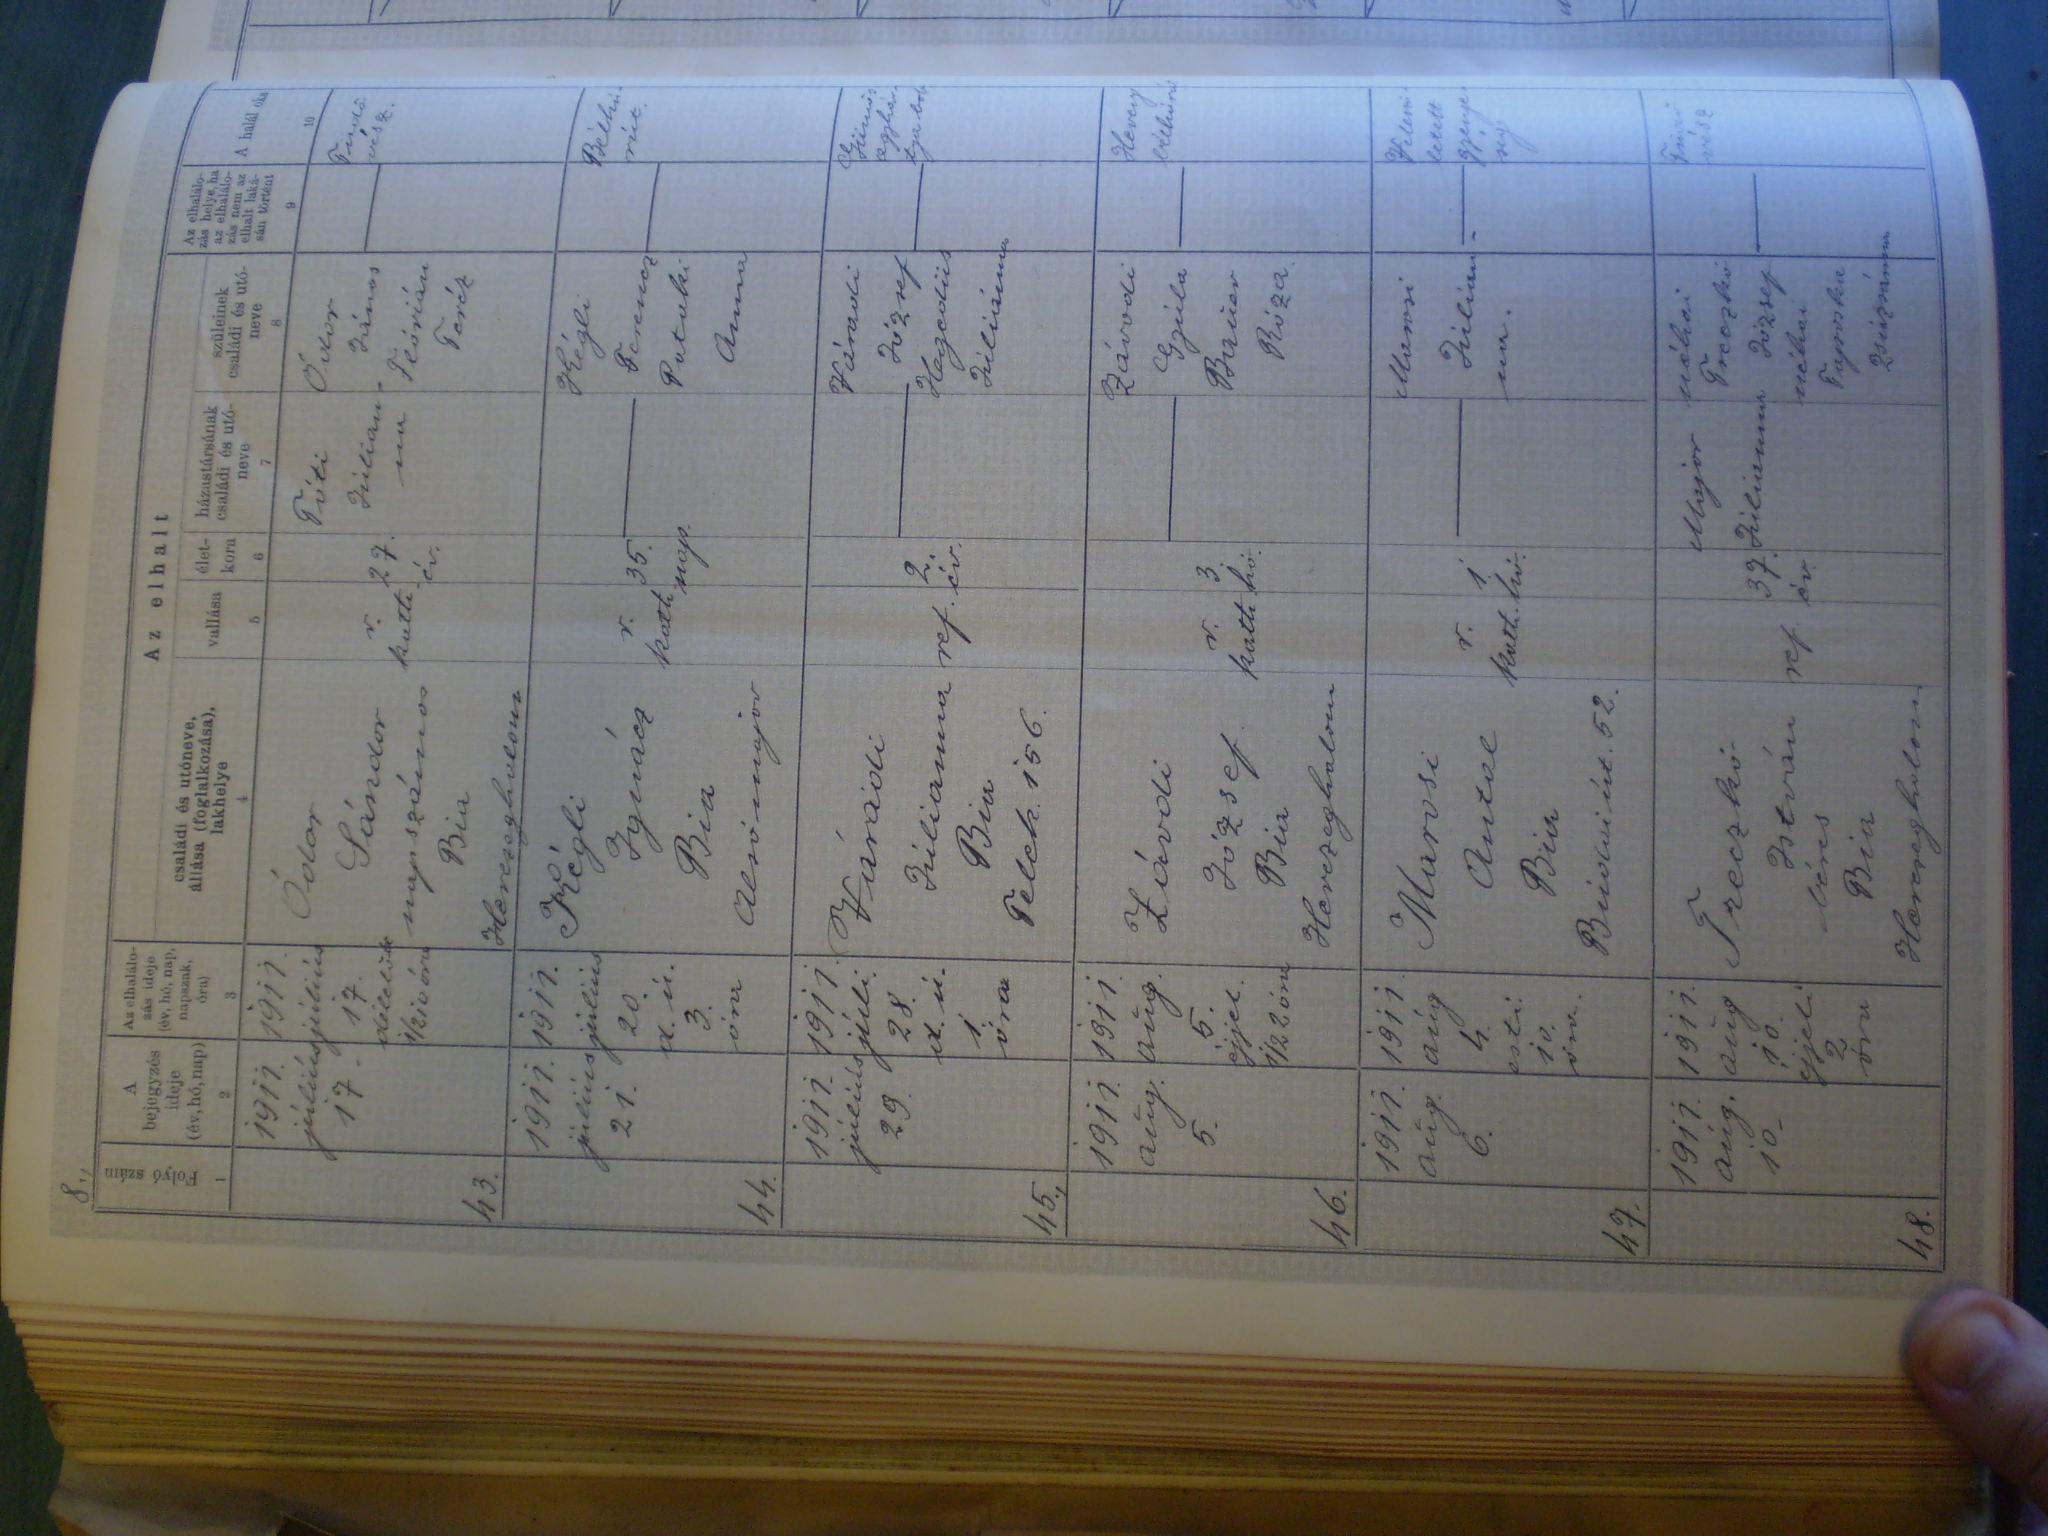 8.
Az elhalt
Folyó szám
A bejegyzés ideje (év, hó, nap)
Az elhalálo-
zás ideje
(év, hó, nap,
napszak,
óra)
családi és utóneve,
állása (foglalkozása),
lakhelye
vallása
élet-
kora
házastársának
családi és utó-
neve
szüleinek
családi és utó-
neve
Az elhalálo-
zás helye, ha
az elhalálo-
zás nem az
elhalt laká-
sán történt
A halál oka
1
2
3
4
5
6
7
8
9
10
43.
1917.
július
17.
1917.
július
17.
délelőtt
1/210 óra
Ódor
Sándor
napszámos
Bia
Herczeghalom
r.
kath.
27.
év.
Tóti
Julián-
na
Ódor
János
Flórián
Teréz
Tüdő
vész.
44.
1917.
július
21.
1917.
július
20.
d. u.
3.
óra
Kégli
Ignácz
Bia
Alsómajor
r.
kath.
35.
nap.
Kégli
Ferencz
Pataki
Anna
Bélhu-
rút.
45.
1917.
július
29.
1917.
júli.
28.
d. u.
1.
óra
Váradi
Juliánna
Bia
Telek. 156.
ref.
2.
év.
Váradi
József
Hegedüs
Juliánna
46.
1917.
aug.
5.
1917.
aug.
5.
éjjel.
1/22 óra
Závodi
József.
Bia
Herczeghalom
r.
kath.
3.
hó.
Závodi
Gyula
Bauer
Róza.
Heveny
bélhurut
47.
1917.
aug.
6.
1917.
aug
4.
esti
10.
óra.
Marosi
Antal
Bia
Budai út. 52.
r.
kath.
1.
hó.
Marosi
Julián-
na.
Veleszü-
letett
gyenge-
ség
48.
1917.
aug.
10.
1917.
aug
10.
éjjeli
2
óra
Treczkó
István
béres
Bia
Herczeghalom.
ref.
37.
év.
Major
Juliánna
néhai
Treczkó
József
néhai
Zsuzsánna
Tüdő
vész